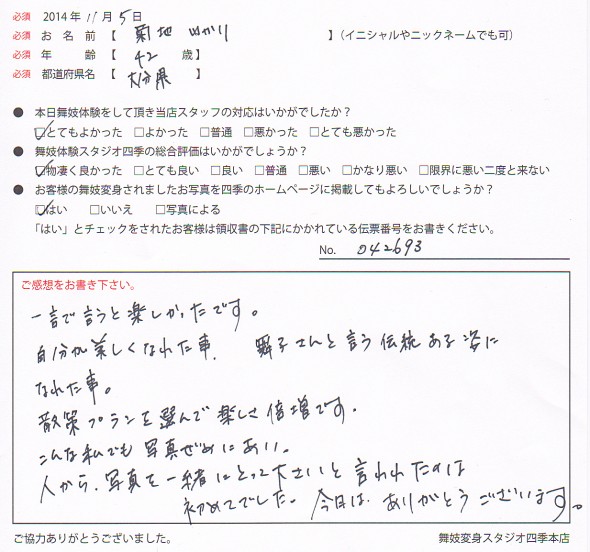 必須 2014年 11月 5日
必須 お名前【 菊地 ゆかり 】(イニシャルやニックネームでも可)
必須 年齢【 42 歳】
必須 都道府県名【 大分県 】
● 本日舞妓体験をして頂き当店スタッフの対応はいかがでしたか?
☑とてもよかった □よかった □普通 □悪かった □とても悪かった
● 舞妓体験スタジオ四季の総合評価はいかがでしょうか?
☑物凄く良かった □とても良い □良い □普通 □悪い □かなり悪い □限界に悪い二度と来ない
● お客様の舞妓変身されましたお写真を四季のホームページに掲載してもよろしいでしょうか?
☑はい □いいえ □写真による
「はい」とチェックをされたお客様は領収書の下記にかかれている伝票番号をお書きください。
No. 042693
ご感想をお書き下さい。
一言で言うと楽しかったです。
自分が美しくなれた事、舞子さんと言う伝統ある姿に
なれた事。
散策プランを選んで楽しさ倍増です。
こんな私でも写真ぜめにあい。
人から、写真を一緒にとって下さいと言われたのは
初めてでした。今日は、ありがとうございます。
ご協力ありがとうございました。 舞妓変身スタジオ四季本店